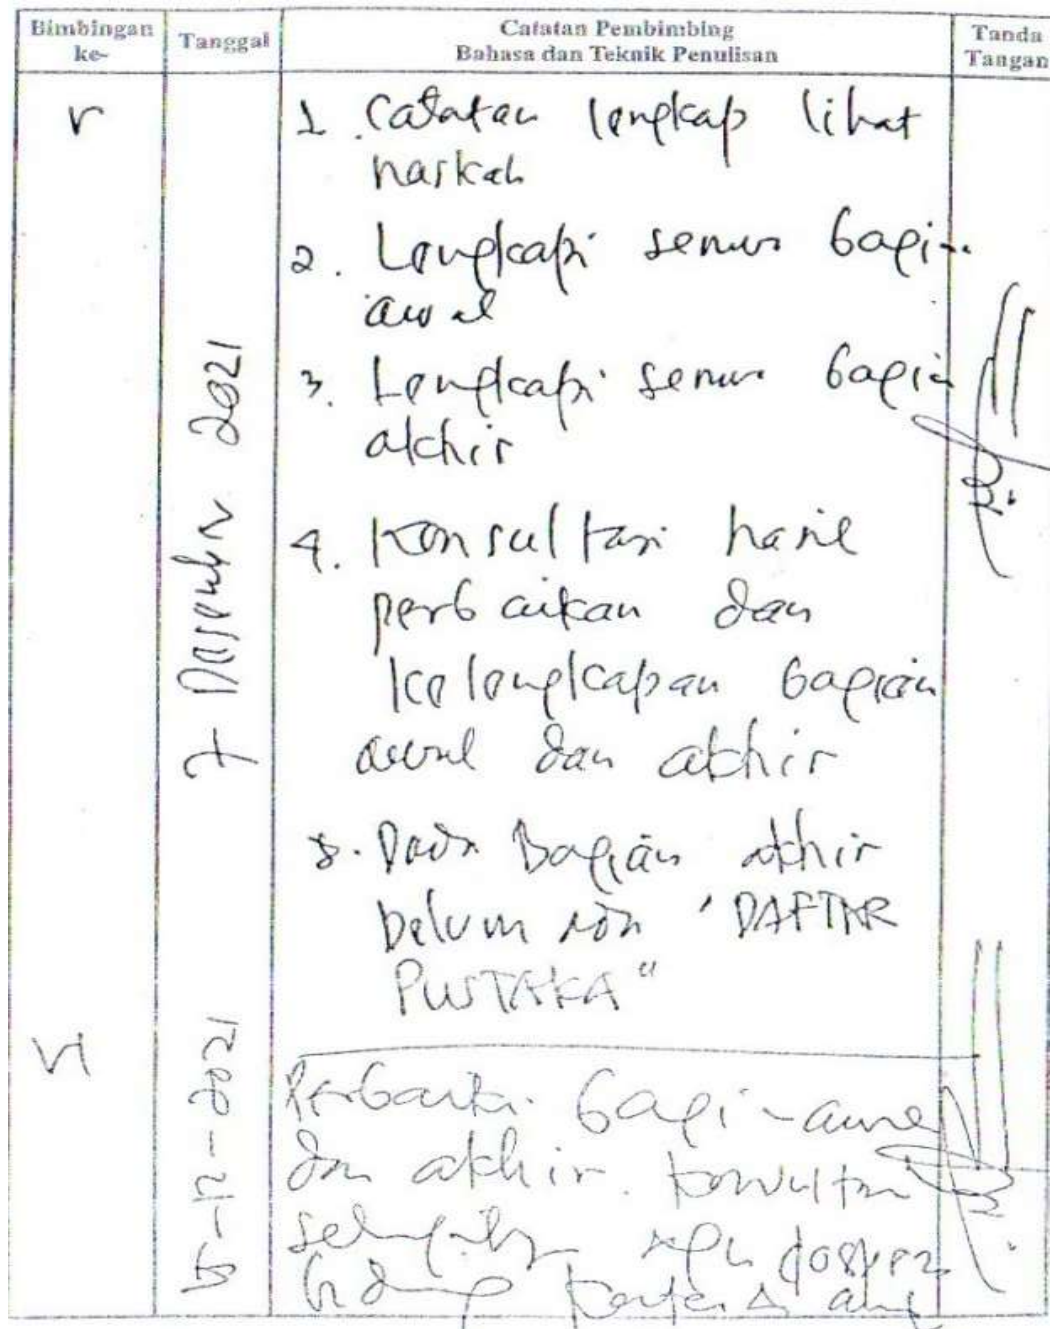 Bimbingan ke-
Tanggal
Catatan Pembimbing
Bahasa dan Teknik Penulisan
Tanda Tangan
V
7 Desember 2021
1. Catatan lengkap lihat
naskah
2. Lengkapi semua bagian
awal
3. Lengkapi semua bagian
akhir
4. Konsultasi hasil
perbaikan dan
kelengkapan bagian
awal dan akhir
5. Pada Bagian akhir
belum ada "DAFTAR
PUSTAKA"
VI
15-12-2021
Perbaiki bagian awal
dan akhir. Konsultasi